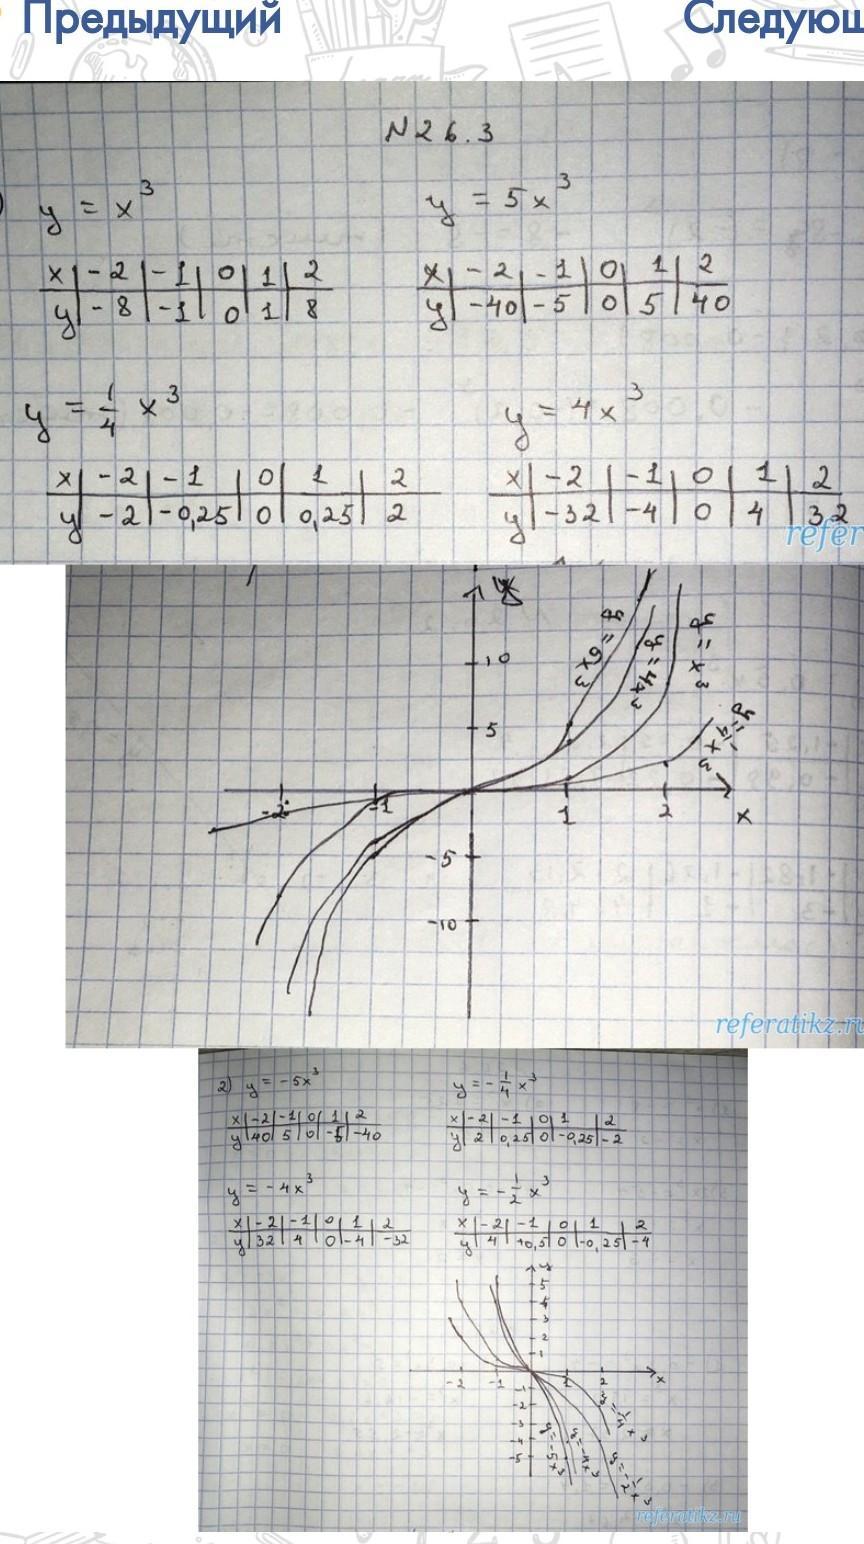 Предыдущий Следующ
N26.3
y = x³ y = 5x³
x | -2 | -1 | 0 | 1 | 2 x | -2 | -1 | 0 | 1 | 2
y | -8 | -1 | 0 | 1 | 8 y | -40 | -5 | 0 | 5 | 40
y = 1/4 x³ y = 4x³
x | -2 | -1 | 0 | 1 | 2 x | -2 | -1 | 0 | 1 | 2
y | -2 | -0,25 | 0 | 0,25 | 2 y | -32 | -4 | 0 | 4 | 32
refer
y
y = 4x³
y = x³
y = 1/4 x³
10
5
-2 -1 1 2 x
-5
-10
referatikz.ru
2) y = -5x³ y = -1/4 x³
x | -2 | -1 | 0 | 1 | 2 x | -2 | -1 | 0 | 1 | 2
y | 40 | 5 | 0 | -5 | -40 y | 2 | 0,25 | 0 | -0,25 | -2
y = -4x³ y = -1/2 x³
x | -2 | -1 | 0 | 1 | 2 x | -2 | -1 | 0 | 1 | 2
y | 32 | 4 | 0 | -4 | -32 y | 4 | +0,5 | 0 | -0,25 | -4
5
4
3
2
1
-2 -1 1 2 x
-1
-2
-3
-4
-5
y = -5x³
y = -4x³
y = -1/4 x³
y = -1/2 x³
referatikz.ru